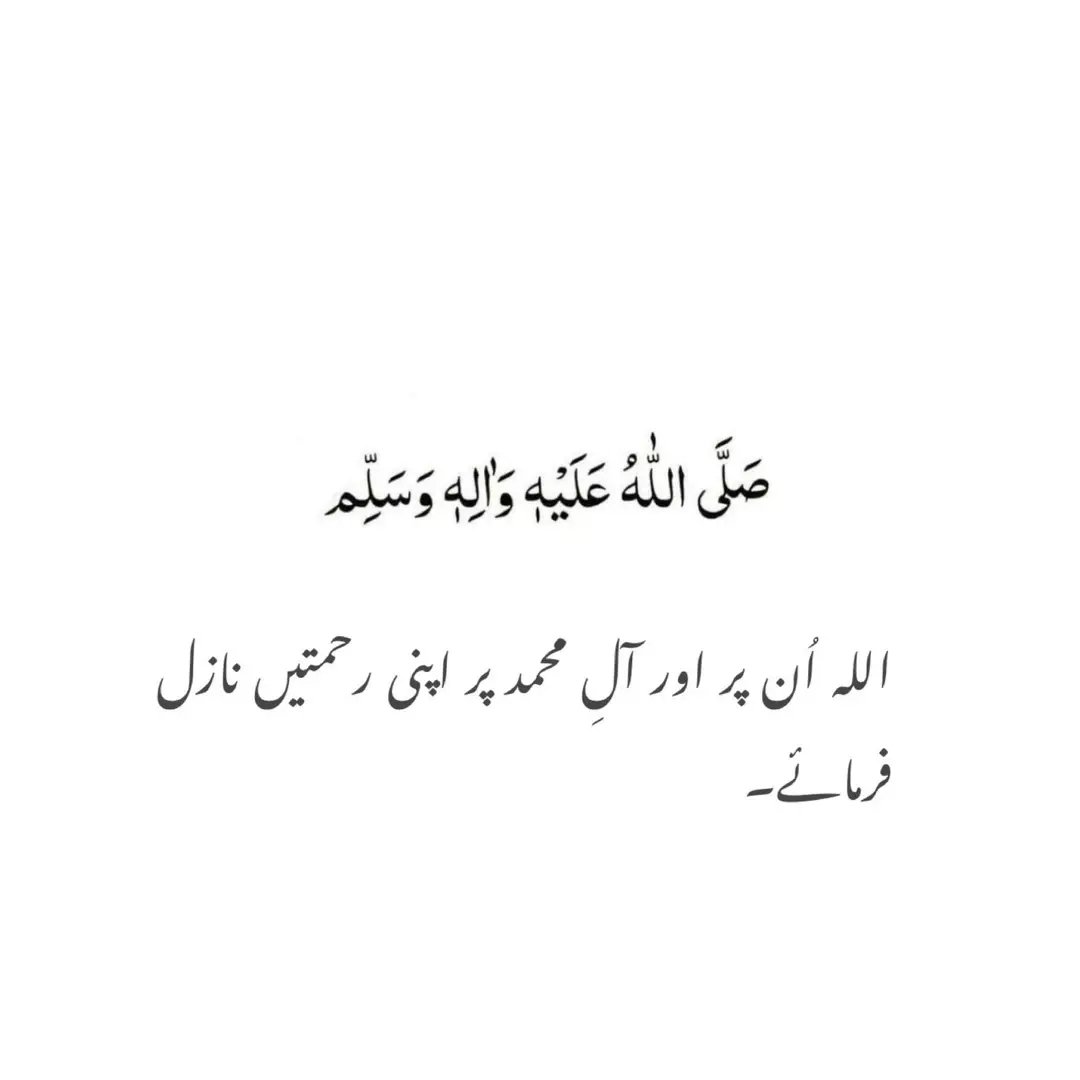 صَلَّى اللّٰهُ عَلَيْهِٖ وَاٰلِهٖ وَسَلِّم
اللہ اُن پر اور آلِ محمد پر اپنی رحمتیں نازل
فرمائے۔